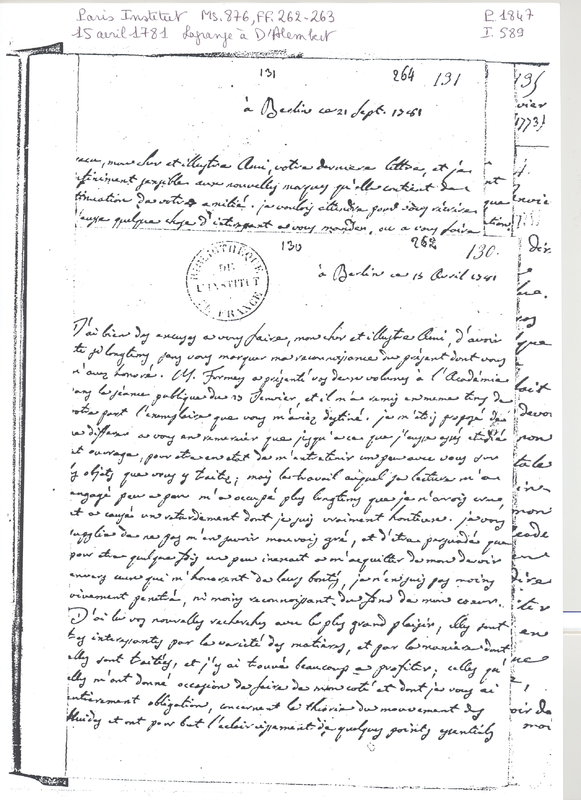 Paris Institut Ms. 876, FF. 262-263
P. 1847
15 avril 1781 Lagrange à D'Alembert
I. 589
131
264
131
135
à Berlin ce 21 Sept. 1781
vrier
1773)
reçu, mon cher et illustre Ami, votre derniere lettre, et j'ai
finiment sensible aux nouvelles marques qu'elle contient de la
tinuation de votre amitié. je voulois attendre pour vous récrire
j'eusse quelque chose d'interessant a vous mander, ou a vous faire
130
262
130.
BIBLIOTHÈQUE DE L'INSTITUT DE FRANCE
à Berlin ce 15 Avril 1781
J'ai bien des excuses a vous faire, mon cher et illustre Ami, d'avoir
té si longtems sans vous marquer ma reconnoissance du présent dont vous
m'avez honoré. M. Formey a présenté vos deux volumes à l'Académie
ans la séance publique du 25 Janvier, et il m'a remis en meme tems de
votre part l'exemplaire que vous m'aviez destiné. je m'étois proposé de
e differer a vous en remercier que jusqu'a ce que j'eusse assés etudié
et ouvrage, pour etre en etat de m'entretenir un peu avec vous sur
s objets que vous y traitez; mais le travail auquel sa lecture m'a
engagé peu a peu m'a occupé plus longtems que je n'avois cru,
et a causé un retardement dont je suis vraiment honteux. je vous
supplie de ne pas m'en savoir mauvois gré, et d'etre persuadé que
pour etre quelque fois un peu inexact a m'acquitter de mon devoir
envers ceux qui m'honorent de leurs bontés, je n'en suis pas moins
vivement penetré, ni moins reconnoissant du fond de mon coeur.
J'ai lu vos nouvelles recherches avec le plus grand plaisir, elles sont
tres interessantes par la varieté des matières, et par la maniere dont
elles sont traitées, et j'y ai trouvé beaucoup a profiter; celles qu'
elles m'ont donné occasion de faire de mon coté et dont je vous ai
entièrement obligation, concernent la théorie du mouvement des
fluides et ont pour but l'eclaircissement de quelques points essentiels